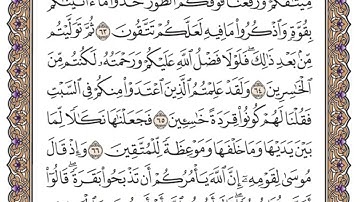 مِيثَـٰقَكُمْ وَرَفَعْنَا فَوْقَكُمُ ٱلطُّورَ خُذُوا۟ مَآ ءَاتَيْنَـٰكُم
بِقُوَّةٍ وَٱذْكُرُوا۟ مَا فِيهِ لَعَلَّكُمْ تَتَّقُونَ ٦٣ ثُمَّ تَوَلَّيْتُم
مِّنۢ بَعْدِ ذَٰلِكَ ۖ فَلَوْلَا فَضْلُ ٱللَّهِ عَلَيْكُمْ وَرَحْمَتُهُۥ لَكُنتُم مِّنَ
ٱلْخَـٰسِرِينَ ٦٤ وَلَقَدْ عَلِمْتُمُ ٱلَّذِينَ ٱعْتَدَوْا۟ مِنكُمْ فِى ٱلسَّبْتِ
فَقُلْنَا لَهُمْ كُونُوا۟ قِرَدَةً خَـٰسِـِٔينَ ٦٥ فَجَعَلْنَـٰهَا نَكَـٰلًا لِّمَا
بَيْنَ يَدَيْهَا وَمَا خَلْفَهَا وَمَوْعِظَةً لِّلْمُتَّقِينَ ٦٦ وَإِذْ قَالَ
مُوسَىٰ لِقَوْمِهِۦٓ إِنَّ ٱللَّهَ يَأْمُرُكُمْ أَن تَذْبَحُوا۟ بَقَرَةً ۖ قَالُوٓا۟